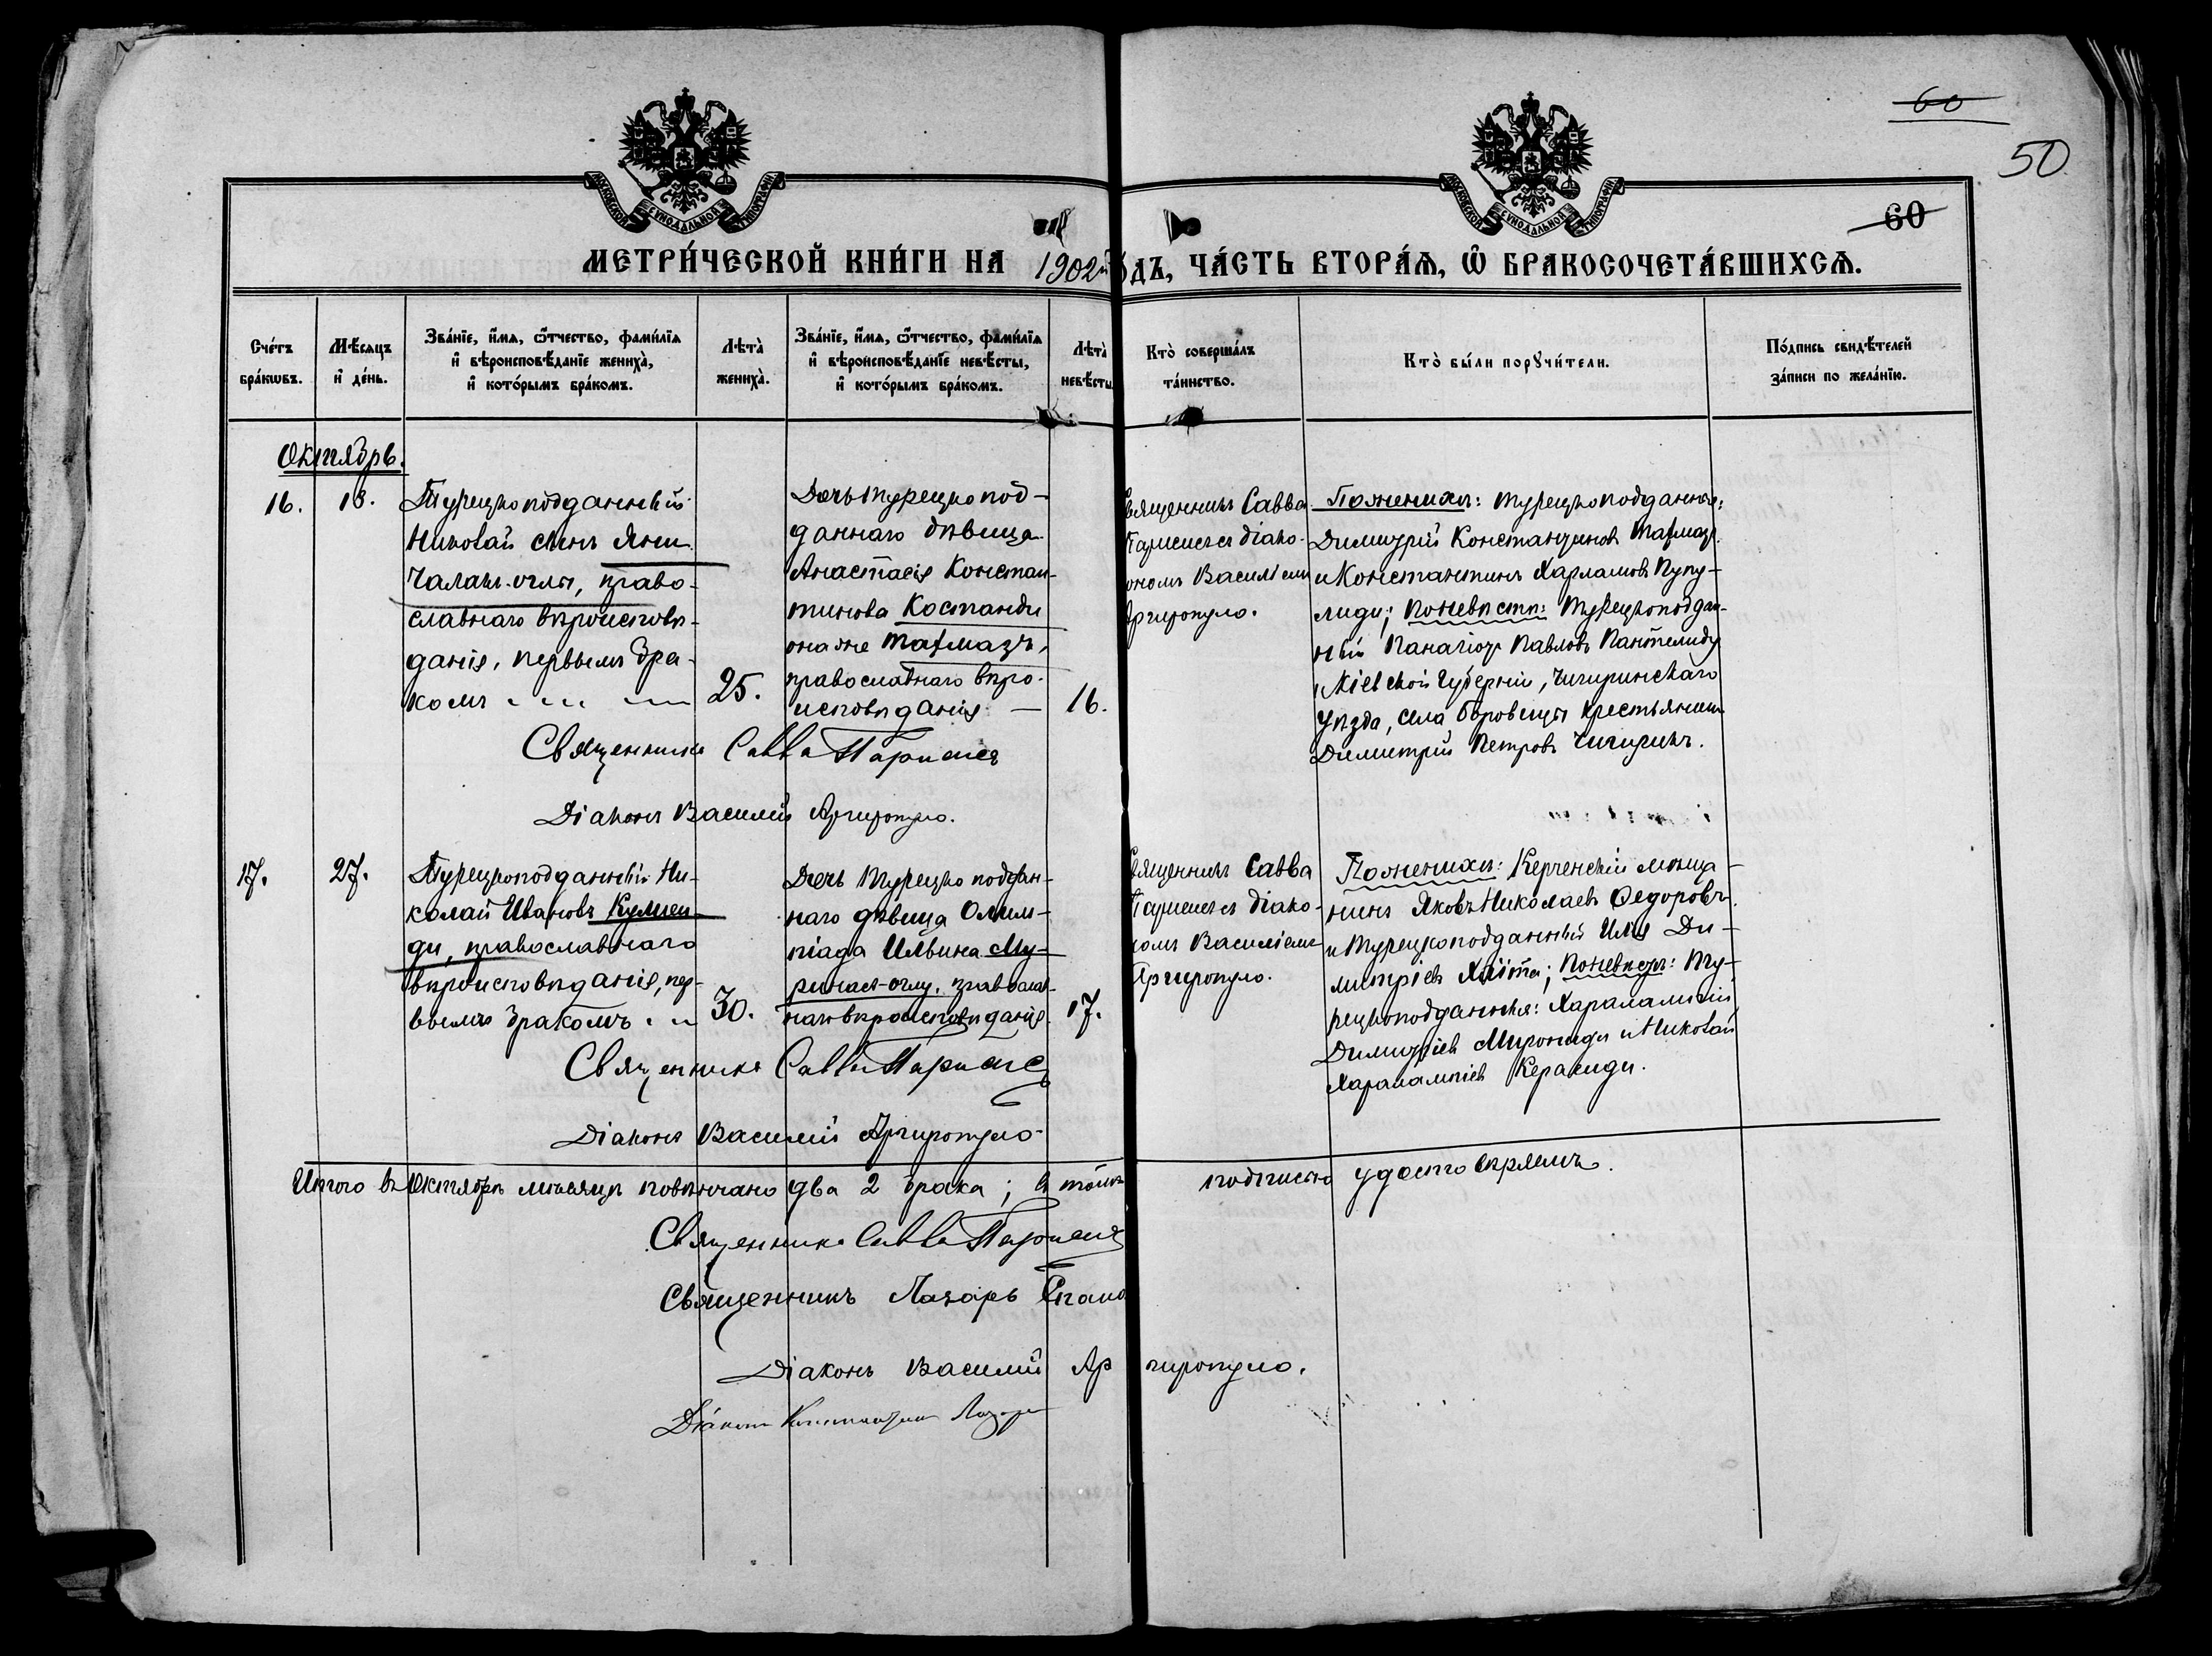 60
50
60
МОСКОВСКОЙ СУНОДАЛЬНОЙ ТИПОГРАФІИ
МОСКОВСКОЙ СУНОДАЛЬНОЙ ТИПОГРАФІИ
МЕТРИ́ЧЕСКОЙ КНИ́ГИ НА 1902й ГОДЪ, ЧА́СТЬ ВТОРА́Я, Ѡ БРАКОСОЧЕТА́ВШИХСЯ.
Сче́тъ бра́кωвъ.
Мѣ́сяцъ и҆ де́нь.
Зва́нїе, и҆́мя, ѻ҆́тчество, фами́лїя и҆ вѣроисповѣ́данїе жениха̀, и҆ кото́рымъ бра́комъ.
Лѣта̀ жениха̀.
Зва́нїе, и҆́мя, ѻ҆́тчество, фами́лїя и҆ вѣроисповѣ́данїе невѣ́сты, и҆ кото́рымъ бра́комъ.
Лѣта̀ невѣ́сты
Кто̀ соверша́лъ та́инство.
Кто̀ бы́ли порꙋчи́тели.
По́дпись свидѣ́телей за́писи по жела́нїю.
Октябрь.
16.
18.
Турецкоподданный
Николай сынъ Яни
Чаланъ-оглы, право-
славнаго вѣроисповѣ-
данія, первымъ бра-
комъ
25.
Дочь турецко под-
даннаго дѣвица
Анастасія Констан-
тинова Костанди
она же Тафмазъ,
православнаго вѣро-
исповѣданія —
16.
Священникъ Савва
діако-
ономъ Василіемъ
Аргиропуло.
По женихѣ: турецкоподданные:
Димитрій Константиновъ Тафмазъ
и Константинъ Харлашовъ Пупу-
лиди; по невѣстѣ: турецкоподдан-
ный Панагіотъ Павловъ Пантелиди
Кіевской губерніи, Чигиринскаго
уѣзда, села Боровицы крестьянинъ
Димитрій Петровъ Чигиринъ.
Священникъ Савва
Діаконъ Василій Аргиропуло.
17.
27.
Турецкоподданный Ни-
колай Ивановъ Кулиси-
ди, православнаго
вѣроисповѣданія, пер-
вымъ бракомъ
30.
Дочь турецко поддан-
наго дѣвица Олим-
піада Ильина Му-
ринасъ-оглу, православ-
наго вѣроисповѣданія
17.
Священникъ Савва
діако-
номъ Василіемъ
Аргиропуло.
По женихѣ: Керченскій мѣща-
нинъ Яковъ Николаевъ Федоровъ
и турецкоподданный Илія Ди-
митріевъ; по невѣстѣ: ту-
рецкоподданные: Харалампій
Димитріевъ Мирониди и Николай
Харалампіевъ Керакиди.
Священникъ Савва
Діаконъ Василій Аргиропуло
Итого въ Октябрѣ мѣсяцѣ повѣнчано два 2 брака; въ томъ подписью удостовѣряемъ.
Священникъ Савва
Священникъ Лазарь
Діаконъ Василій Аргиропуло.
Діаконъ Константинъ